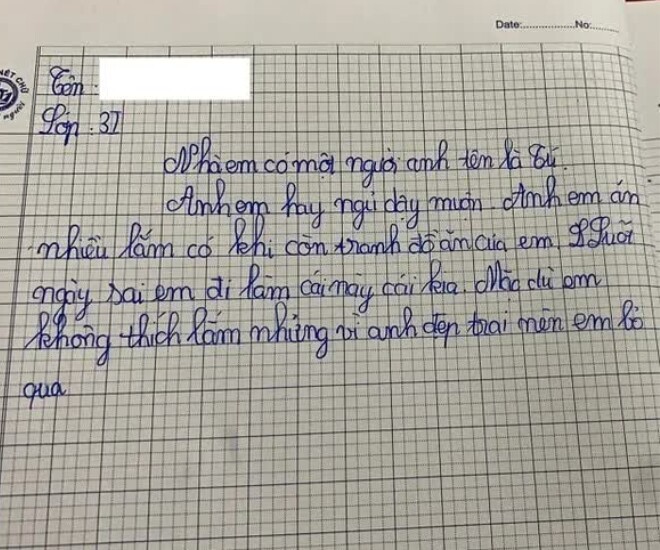 Date:..................No:.........
NÉT CHỮ
người
Tên.
Lớp. 3I
Nhà em có một người anh tên là Tú.
Anh em hay ngủ dậy muộn. Anh em ăn
nhiều lắm có khi còn tranh đồ ăn của em. Suốt
ngày sai em đi làm cái này cái kia. Mặc dù em
không thích lắm nhưng vì anh đẹp trai nên em bỏ
qua